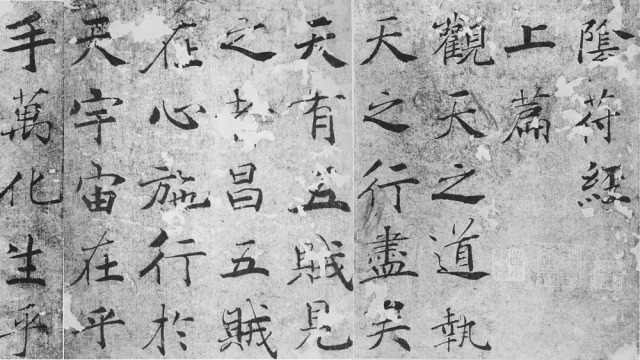 陰苻經
上萹
觀天之道執
天之行盡矣
天有五賊見
之者昌五賊
在心施行於
天宇宙在乎
手萬化生乎